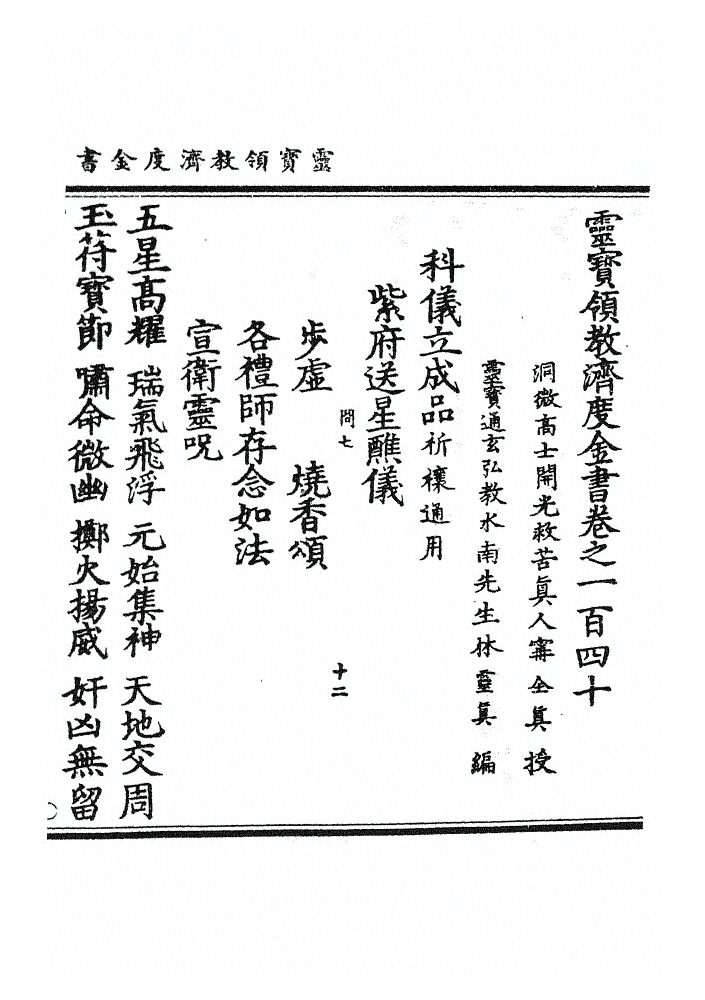 靈寶領教濟度金書
靈寶領教濟度金書卷之一百四十
洞微高士開光救苦真人甯全真授
靈寶通玄弘教水南先生林靈真編
科儀立成品祈禳通用
紫府送星醮儀
問七
十二
步虛 燒香頌
各禮師存念如法
宣衛靈呪
五星高耀 瑞氣飛浮 元始集神 天地交周
玉符寶節 嘯命微幽 擲火揚威 奸凶無留